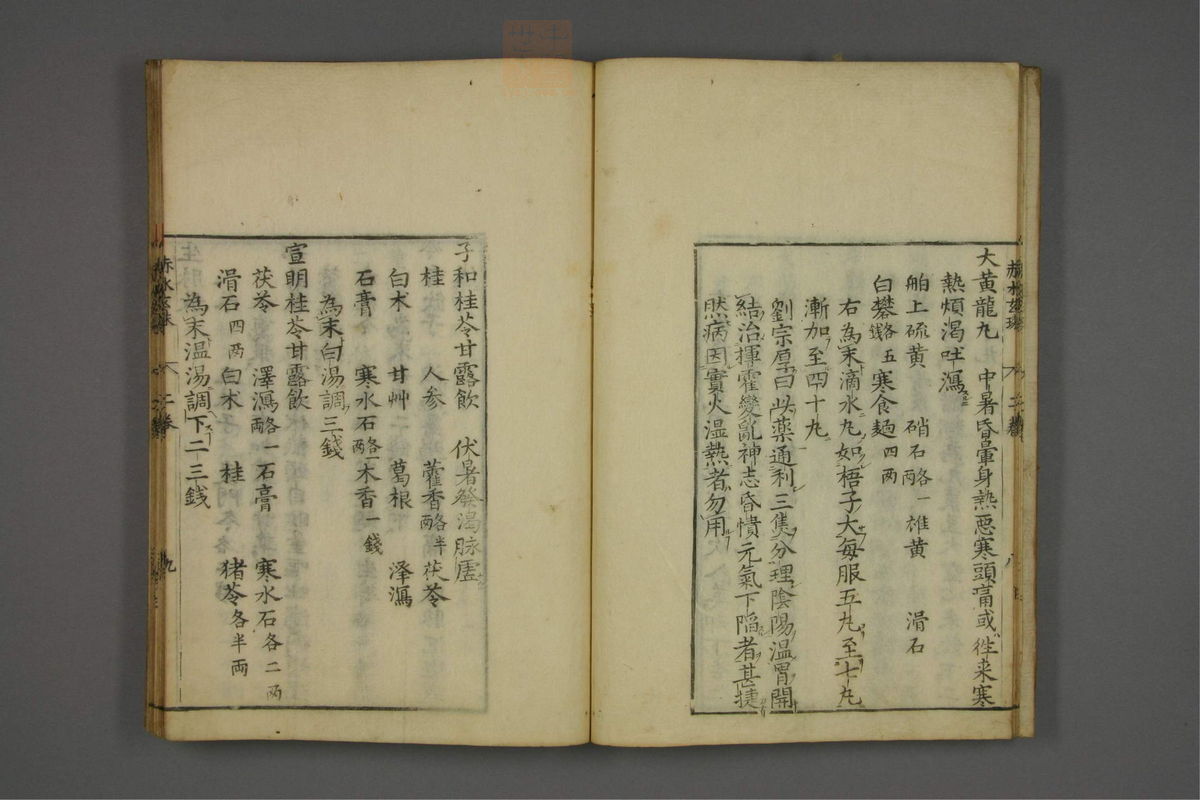 大黄龍丸　中暑昏暈身熱惡寒頭痛或徃来寒
熱煩渴吐瀉
舶上硫黄　硝石各一両　雄黄　滑石
白礬各五錢　寒食麺四両
右為末滴水丸如梧子大每服五丸至七丸
漸加至四十丸
劉宗厚曰此藥通利三焦分理陰陽温胃開
結治揮霍變亂神志昏憒元氣下陷者甚捷
然病因實火湿熱者勿用
赤水玄珠　二卷　八
子和桂苓甘露飲　伏暑發渴脉虛
桂　人参　藿香各半両　茯苓
白木　甘艸　葛根　澤瀉
石膏　寒水石各一両　木香一錢
為末白湯調三錢
宣明桂苓甘露飲
茯苓　澤瀉各一両　石膏　寒水石各二両
滑石四両　白木　桂　猪苓各半両
為末温湯調下二三錢
赤水玄珠　二卷　九